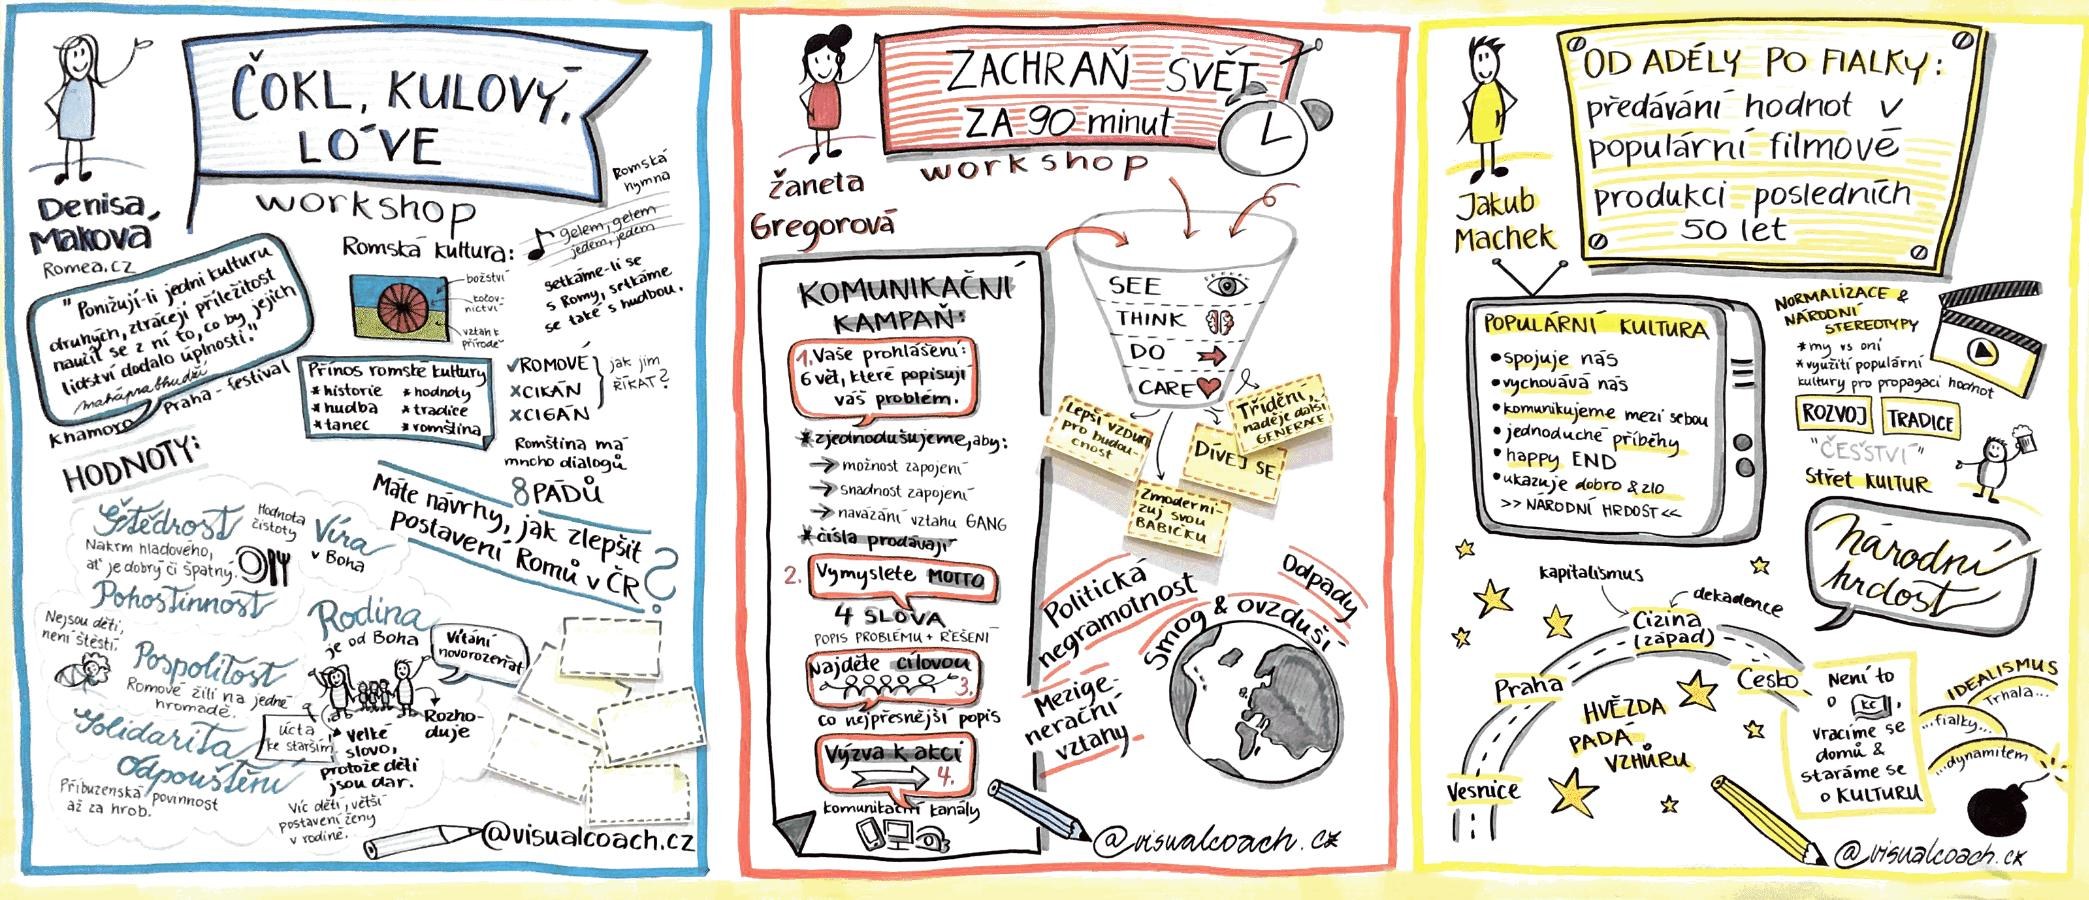 ČOKL, KULOVÝ,
LÓVE
workshop
Denisa
Maková
Romea.cz
"Ponižují-li jedni kulturu
druhých, ztrácejí příležitost
naučit se z ní to, co by jejich
lidství dodalo úplnosti."
Khamoro Praha - festival
Romská kultura:
božství
kočov-
nictví
vztah k
přírodě
Romská
hymna
gelem, gelem
jedem, jedem
setkáme-li se
s Romy, setkáme
se také s hudbou.
Přínos romské kultury
* historie
* hudba
* tanec
* hodnoty
* tradice
* romština
✓ROMOVÉ
XCIKÁN
XCIGÁN
jak jim
ŘÍKAT?
Romština má
mnoho dialogů
8 PÁDŮ
Máte návrhy, jak zlepšit
postavení Romů v ČR?
HODNOTY:
Štědrost
Nakrm hladového,
ať je dobrý či špatný.
Hodnota
čistoty
Víra
v Boha
Pohostinnost
Nejsou děti,
není štěstí.
Rodina
je od Boha
Vítání
novorozeňat
Pospolitost
Romové žili na jedné
hromadě.
úcta
ke starším
Rozho-
duje
velké
slovo,
protože děti
jsou dar.
Solidarita
Odpouštění
Příbuzenská povinnost
až za hrob.
Víc dětí, větší
postavení ženy
v rodině.
@visualcoach.cz
ZACHRAŇ SVĚT
ZA 90 minut
workshop
Žaneta
Gregorová
KOMUNIKAČNÍ
KAMPAŇ:
1. Vaše prohlášení:
6 vět, které popisují
váš problém.
* zjednodušujeme, aby:
→ možnost zapojení
→ snadnost zapojení
→ navázání vztahu GANG
* čísla prodávají
2. Vymyslete MOTTO
4 SLOVA
POPIS PROBLÉMU + ŘEŠENÍ
Najděte cílovou
3.
co nejpřesnější popis
Výzva k akci
4.
komunikační kanály
SEE
THINK
DO
CARE
Lepší vzduch
pro budou-
cnost
Třídění,
naděje další
GENERACE
DÍVEJ SE
Zmoderni-
zuj svou
BABIČKU
Politická
negramotnost
Odpady
Smog & ovzduší
Mezige-
nerační
vztahy
@visualcoach.cz
OD ADÉLY PO FIALKY:
předávání hodnot v
populární filmové
produkci posledních
50 let
Jakub
Machek
POPULÁRNÍ KULTURA
• spojuje nás
• vychovává nás
• komunikujeme mezi sebou
• jednoduché příběhy
• happy END
• ukazuje dobro & zlo
>> NÁRODNÍ HRDOST <<
NORMALIZACE &
NÁRODNÍ
STEREOTYPY
* my vs oni
* využití populární
kultury pro propagaci hodnot
ROZVOJ
TRADICE
"ČEŠSTVÍ"
Střet KULTUR
národní
hrdost
kapitalismus
dekadence
Cizina
(západ)
Praha
Česko
Vesnice
HVĚZDA
PADÁ
VZHŮRU
Není to
o Kč,
vracíme se
domů &
staráme se
o KULTURU
IDEALISMUS
Trhala...
...fialky...
...dynamitem
@visualcoach.cz